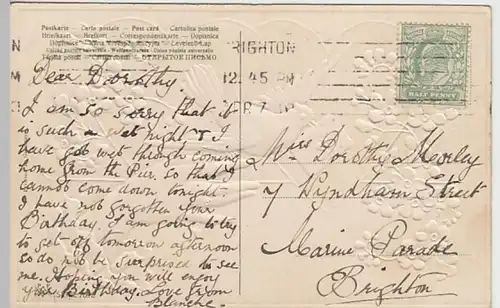 Postkarte — Carte postale — Post card — Cartolina postale
ОТКРЫТОЕ ПИСЬМО
BRIGHTON
12.45 PM
HALF PENNY
Dear Dorothy
I am so sorry that it
is such a wet night & I
have got wet through coming
home from the Pier, so that I
cannot come down tonight.
I have not forgotten your
Birthday. I am going to try
to get off tomorrow afternoon
so do not be surprised to see
me. Hoping you will enjoy
your Birthday. Love from
Blanche.
Miss Dorothy Morley
7 Wyndham Street
Marine Parade
Brighton